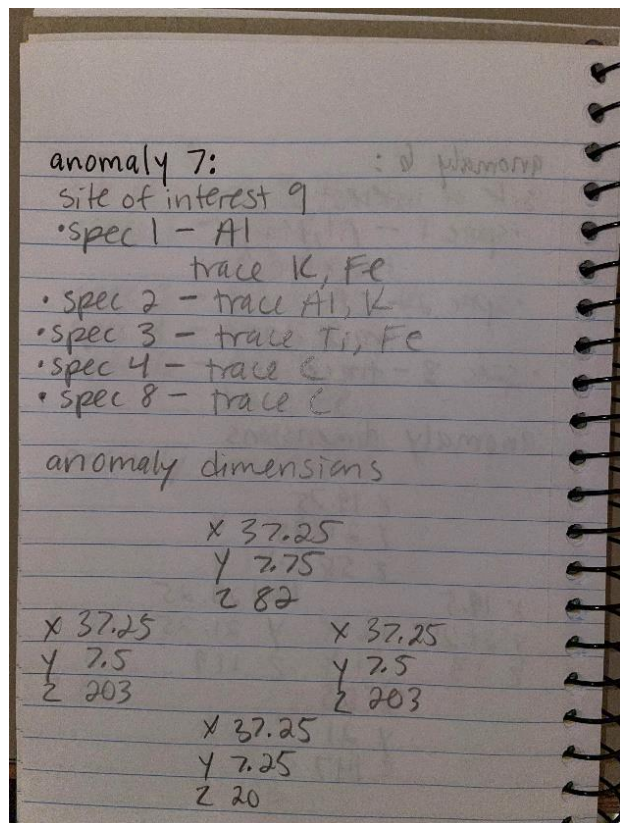 anomaly 7:
site of interest 9
• spec 1 - Al
trace K, Fe
• spec 2 - trace Al, K
• spec 3 - trace Ti, Fe
• spec 4 - trace C
• spec 8 - trace C
anomaly dimensions
x 37.25
y 7.75
z 82
x 37.25 x 37.25
y 7.5 y 7.5
z 203 z 203
x 37.25
y 7.25
z 20